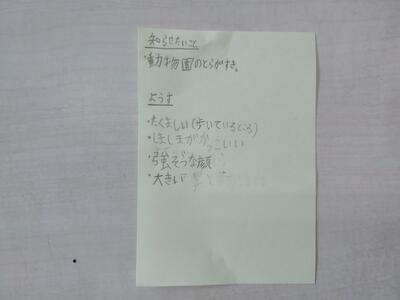 知らせたいこと
・動物園のとらがすき。
ようす
・たくましい(歩いているところ)
・しましまがかっこいい
・強そうな顔
・大きい